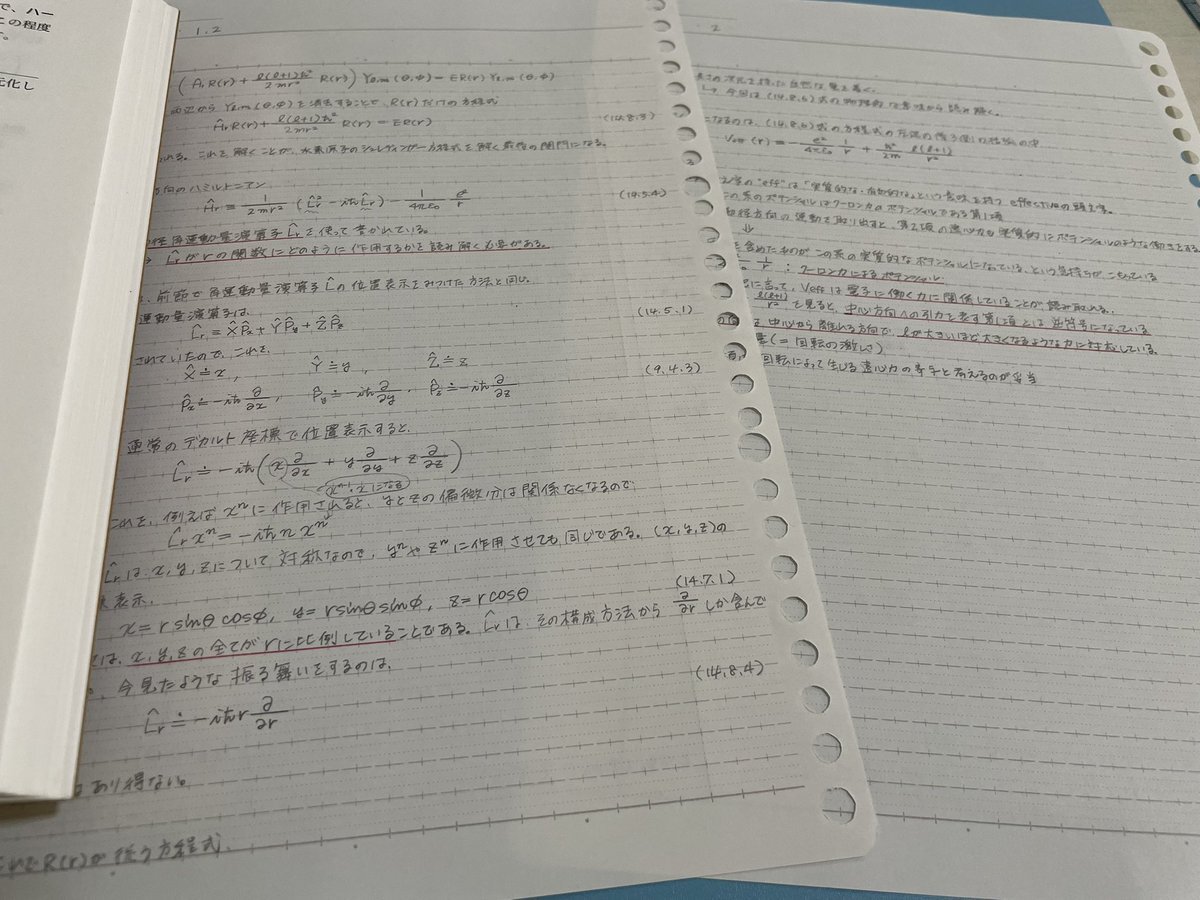 で、ハー
この程度
す。
元化し
1.2
(Ĥr R(r) + ℓ(ℓ+1)ħ²/2mr² R(r)) Yℓ,m(θ,φ) = ER(r) Yℓ,m(θ,φ)
両辺から Yℓ,m(θ,φ)を消去することで、R(r)だけの方程式
Ĥr R(r) + ℓ(ℓ+1)ħ²/2mr² R(r) = ER(r) (14.8.3)
れる。これを解くことが、水素原子のシュレディンガー方程式を解く最後の関門になる。
方向のハミルトニアン
Ĥr = 1/2mr² (L̂r² − iħL̂r) − 1/4πε₀ e²/r (14.5.4)
径角運動量演算子 L̂r を使って書かれている。
→ L̂r がrの関数にどのように作用するかを読み解く必要がある。
、前節で角運動量演算子 L̂ の位置表示をみつけた方法と同じ。
運動量演算子は、
L̂r = X̂P̂x + ŶP̂y + ẐP̂z (14.5.1)
されていたので、これを、
X̂ ≐ x, Ŷ ≐ y, Ẑ ≐ z
P̂x ≐ −iħ ∂/∂x, P̂y ≐ −iħ ∂/∂y, P̂z ≐ −iħ ∂/∂z (9.4.3)
通常のデカルト座標で位置表示すると、
L̂r ≐ −iħ(x ∂/∂x + y ∂/∂y + z ∂/∂z)
xⁿ⁻¹·x になる
これを、例えば xⁿ に作用されると、yとzの偏微分は関係なくなるので
L̂r xⁿ = −iħ n xⁿ
L̂r は x, y, z について対称なので、yⁿ や zⁿ に作用させても同じである。(x, y, z)の
表示、
x = r sinθ cosφ, y = r sinθ sinφ, z = r cosθ (14.7.1)
は、x, y, z の全てがrに比例していることである。L̂r は、その構成方法から ∂/∂r しか含んで
、今見たような振る舞いをするのは、
L̂r ≐ −iħr ∂/∂r (14.8.4)
はあり得ない。
R(r)が従う方程式、
2
長さの次元を持った自然な量を置く。
→ 今回は(14.8.6)式の物理的な意味から読み解く。
になるのは、(14.8.6)式の方程式の左辺の
Veff(r) = − e²/4πε₀ 1/r + ħ²/2m ℓ(ℓ+1)/r²
字の"eff"は「実質的な・有効的な」という意味を持つ effective の頭文字。
この系のポテンシャルはクーロン力のポテンシャルである第1項
動径方向の運動を取り出すと、第2項の遠心力も実質的にポテンシャルのような働きをする
↓
を含めたものがこの系の実質的なポテンシャルになっている、という気持ちがこもっている
1/r : クーロン力によるポテンシャル
に言って、Veffは電子に働く力に関係していることが読み取れる。
ℓ(ℓ+1)/r² を見ると、中心方向への引力を表す第1項とは逆符号になっている
中心から離れる方向で、ℓが大きいほど大きくなるような力に対応している。
量(=回転の激しさ)
回転によって生じる遠心力の寄与と考えるのが妥当